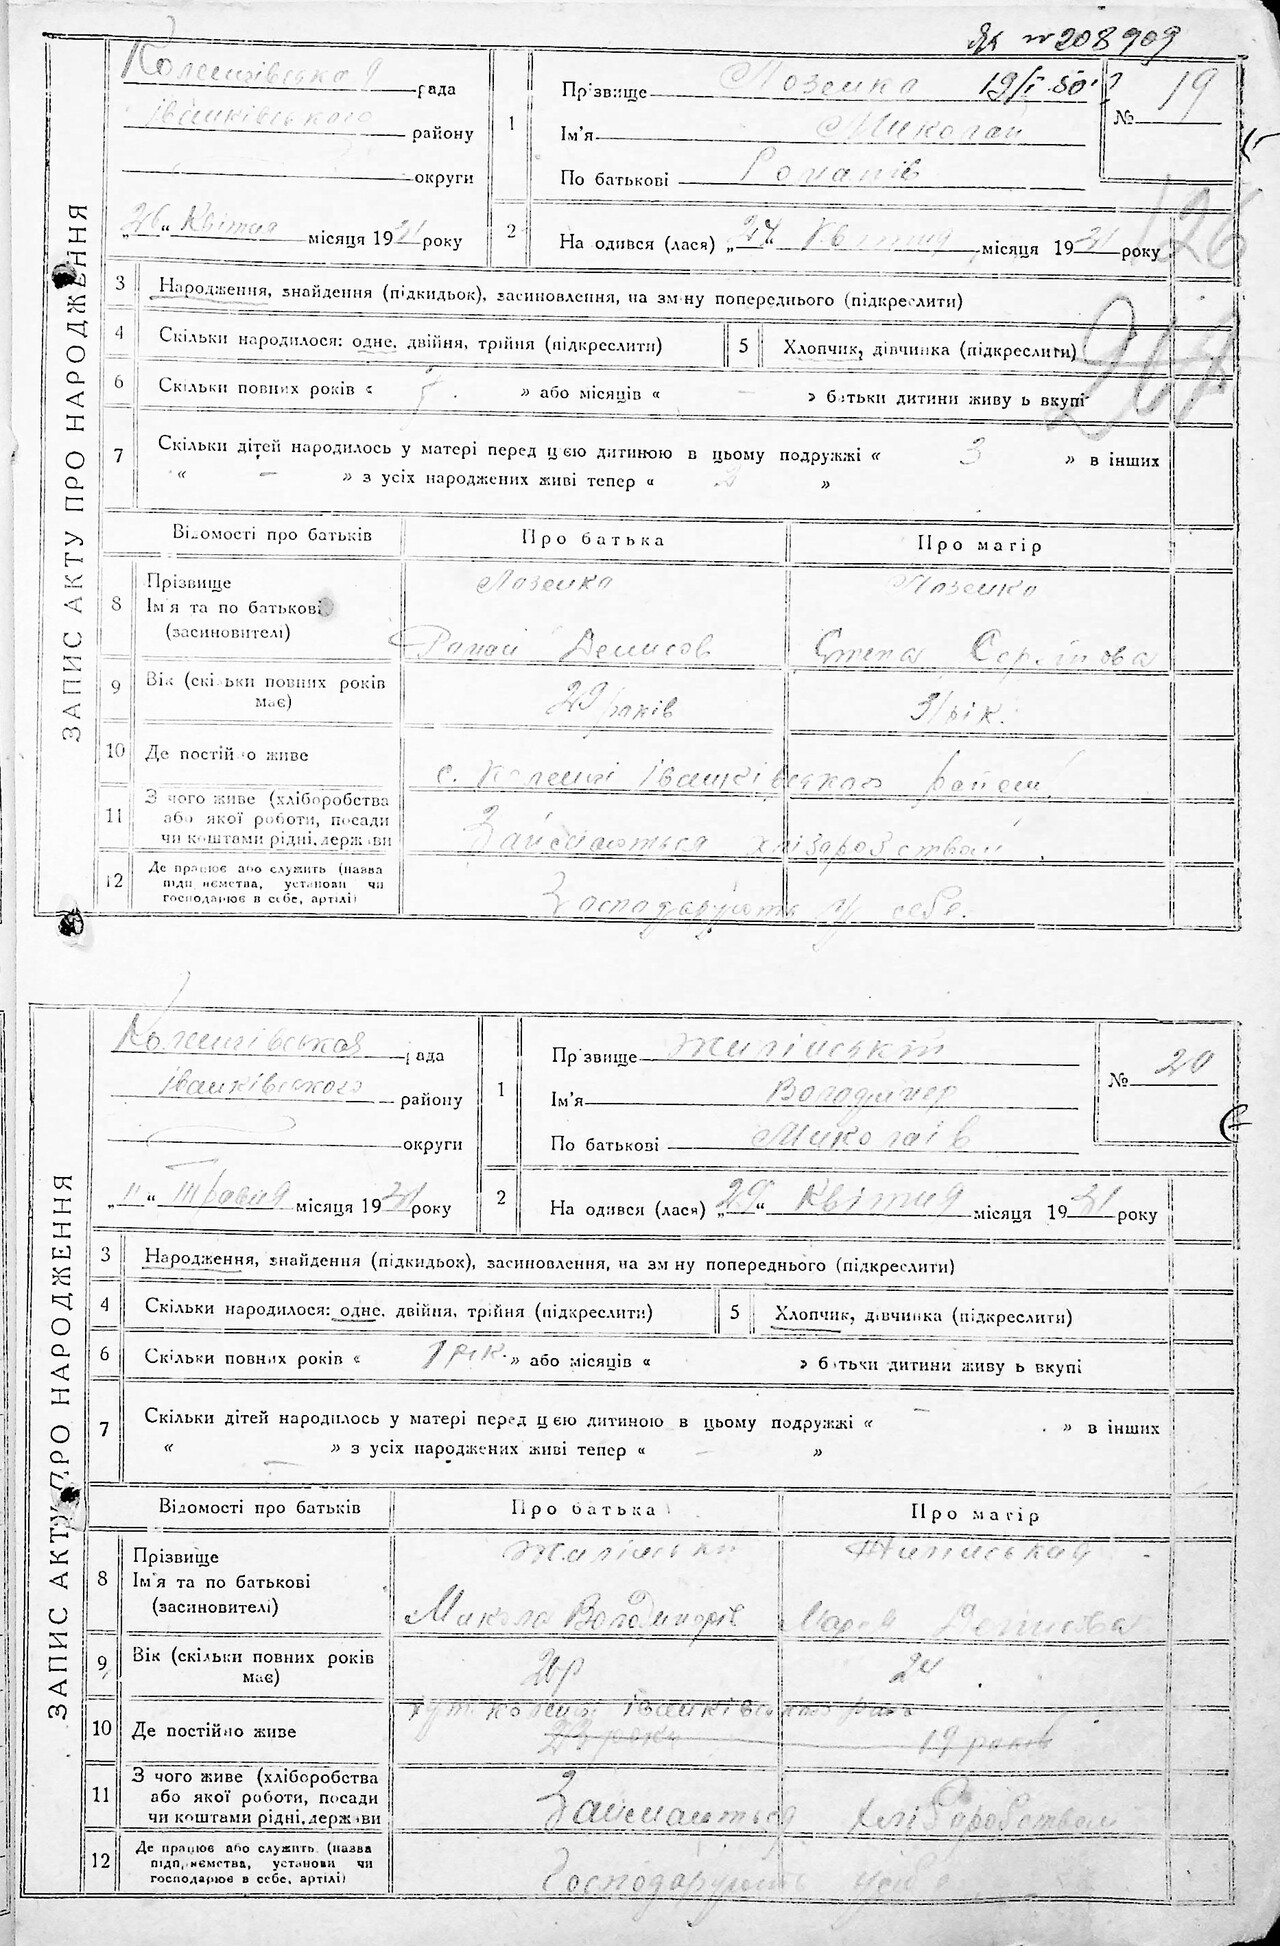 № 208909
19/I 50
ЗАПИС АКТУ ПРО НАРОДЖЕННЯ
рада
Іванківського району
округи
„26“ Квітня місяця 1931 року
1
Прізвище Лозенко
Ім'я Миколай
По батькові Романів
№ 19
2
На одився (лася) „24“ Квітня місяця 1931 року
126
3
Народження, знайдення (підкидьок), засиновлення, на зміну попереднього (підкреслити)
4
Скільки народилося: одне, двійня, трійня (підкреслити)
5
Хлопчик, дівчинка (підкреслити)
6
Скільки повних років « » або місяців « — » батьки дитини живу ь вкупі
7
Скільки дітей народилось у матері перед цією дитиною в цьому подружжі « 3 » в інших
« — » з усіх народжених живі тепер « 3 »
Відомості про батьків
Про батька
Про матір
8
Прізвище
Ім'я та по батькові
(засиновителі)
Лозенко
Роман Денисов
Лозенко
9
Вік (скільки повних років має)
29 років
31 рік.
10
Де постійно живе
с. Іванківського району
11
З чого живе (хліборобства
або якої роботи, посади
чи коштами рідні, держави
Займаються хліборобством
12
Де працює або служить (назва
підприємства, установи чи
господарює в себе, артілі)
Господарують у себе.
ЗАПИС АКТУ ПРО НАРОДЖЕННЯ
рада
Іванківського району
округи
„11“ Травня місяця 1931 року
1
Прізвище Жилінський
Ім'я Володимер
По батькові Миколаїв
№ 20
2
На одився (лася) „29“ Квітня місяця 1931 року
3
Народження, знайдення (підкидьок), засиновлення, на зміну попереднього (підкреслити)
4
Скільки народилося: одне, двійня, трійня (підкреслити)
5
Хлопчик, дівчинка (підкреслити)
6
Скільки повних років « 1 рік. » або місяців « » батьки дитини живу ь вкупі
7
Скільки дітей народилось у матері перед цією дитиною в цьому подружжі « — » в інших
« — » з усіх народжених живі тепер « — »
Відомості про батьків
Про батька
Про матір
8
Прізвище
Ім'я та по батькові
(засиновителі)
Микола Володимирів
Марія Денисова
9
Вік (скільки повних років має)
24
10
Де постійно живе
хут. Іванківського
23 роки 19 років
11
З чого живе (хліборобства
або якої роботи, посади
чи коштами рідні, держави
Займаються хліборобством
12
Де працює або служить (назва
підприємства, установи чи
господарює в себе, артілі)
Господарують